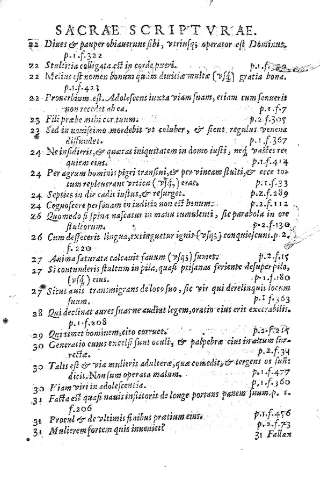 SACRAE SCRIPTVRAE.
22 Diues & pauper obiauerunt sibi, vtriusq; operator est Dominus.
p.1.f.322
22 Stultitia colligata est in corde pueri.
22 Melius est nomen bonum quàm diuitiæ multæ (vsq;) gratia bona.
p.1.f.423
22 Prouerbium est. Adolescens iuxta viam suam, etiam cum senuerit
non recedet ab ea. p.1.f.7
23 Fili præbe mihi cor tuum. p.2.f.305
23 Sed in nouissimo mordebit vt coluber, & sicut regulus venena
diffundet. p.1.f.367
24 Ne insidieris, & quæras iniquitatem in domo iusti, neq; vastes re
quiem eius. p.1.f.414
24 Per agrum hominis pigri transiui, & per vineam stulti, & ecce to
tum repleuerant vrticæ (vsq;) erat. p.1.f.33
24 Septies in die cadit iustus, & resurget. p.2.f.289
24 Cognoscere personam in iudicio non est bonum. p.2.f.112
26 Quomodo si spina nascatur in manu temulenti, sic parabola in ore
stultorum. p.2.f.130
26 Cum defecerint ligna, extinguetur ignis (vsq;) conquiescunt. p.2.
f.220
27 Anima saturata calcauit fauum (vsq;) sumet. p.2.f.15
27 Si contuderis stultum in pila, quasi ptisanas feriente desuper pilo,
(vsq;) eius. p.1.f.180
27 Sicut auis transmigrans de loco suo, sic vir qui derelinquit locum
suum. p.1.f.363
28 Qui declinat aures suas ne audiat legem, oratio eius erit execrabilis.
p.1.f.208
29 Qui timet hominem, cito corruet. p.2.f.215
30 Generatio cuius excelsi sunt oculi, & palpebræ eius in altum sur-
rectæ. p.2.f.34
30 Talis est & via mulieris adulteræ, quæ comedit, & tergens os suum
dicit. Non sum operata malum. p.1.f.477
30 Viam viri in adolescentia. p.1.f.360
31 Facta est quasi nauis institoris de longe portans panem suum. p.
f.206
31 Procul & de vltimis finibus pretium eius. p.1.f.456
31 Mulierem fortem quis inueniet? p.2.f.73
31 Fallax